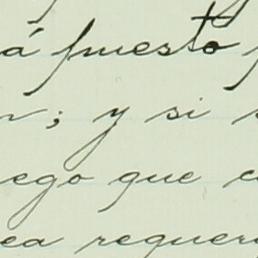 á puesto
; y si
ego que
ea requer